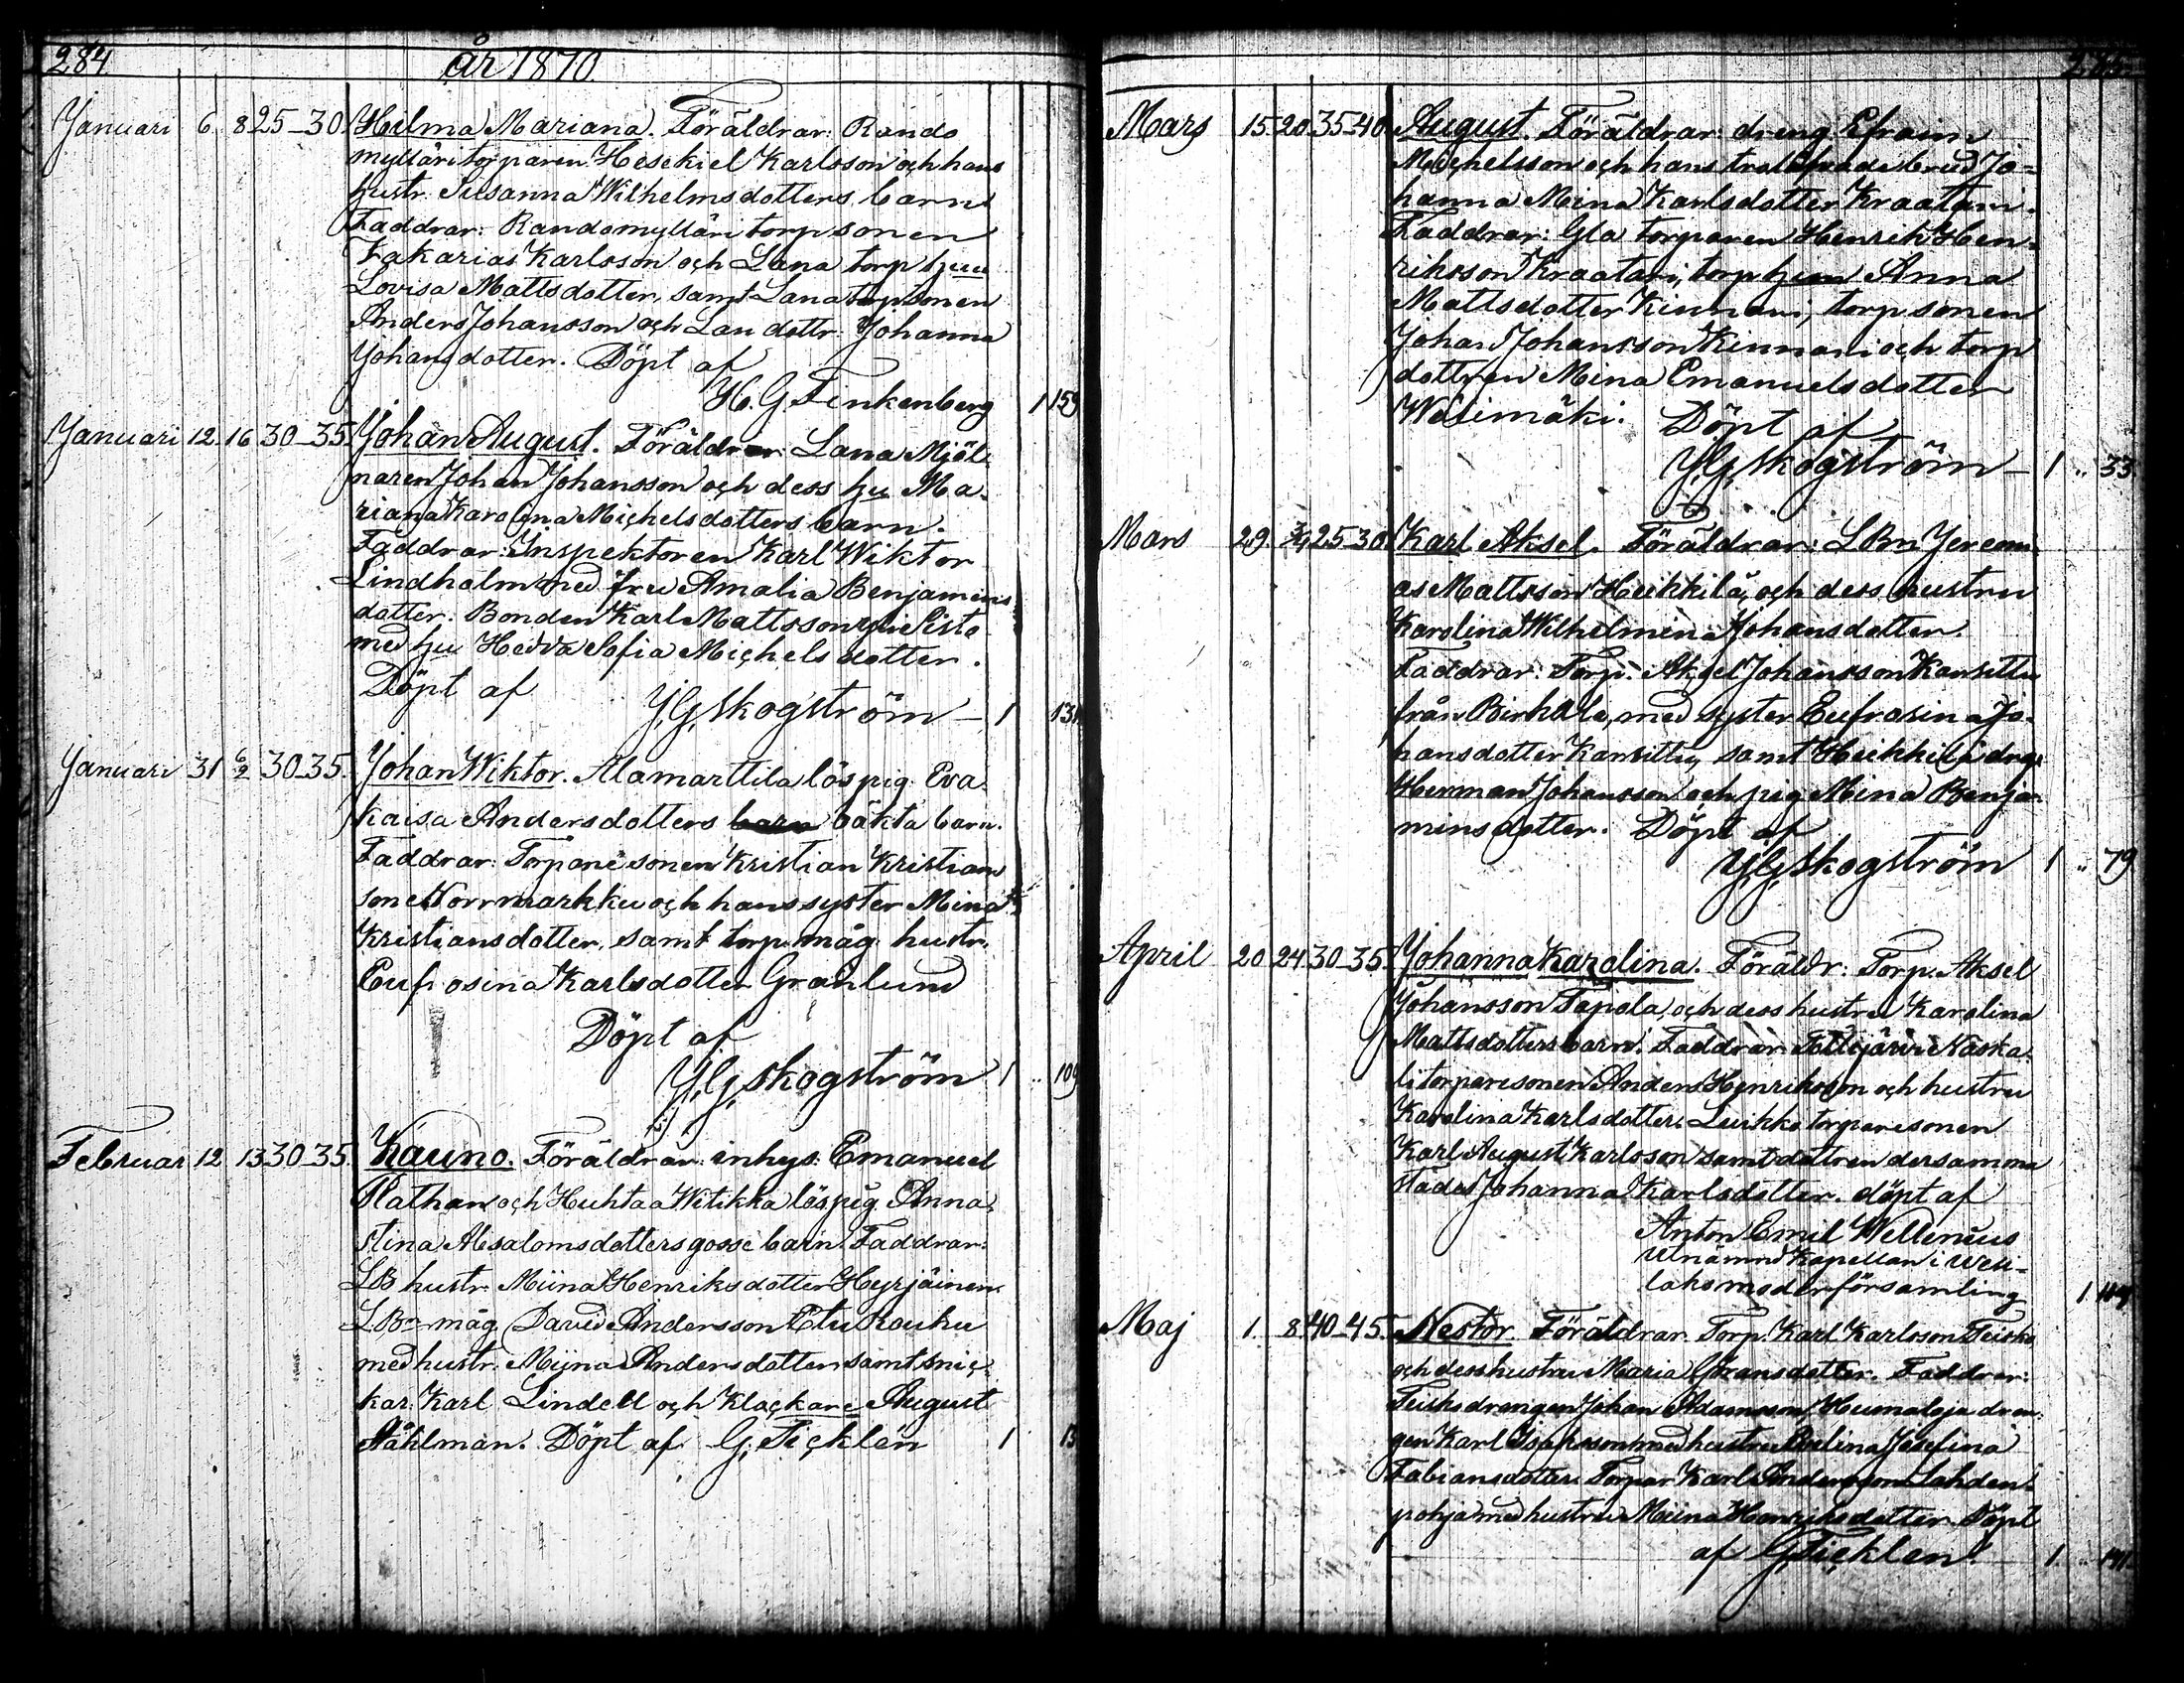 284
år 1870
Januari 6. 8 25-30 Hilma Mariana. Föräldrar: Rando
mylläri torparen Hesekiel Karlsson och hans
hustr. Susanna Wilhelmsdotters barn
Faddrar: Randomylläri torpsonen
Zakarias Karlsson och Lana torp hu
Lovisa Mattsdotter, samt Lana torpsonen
Anders Johansson och Lan dottr. Johanna
Johansdotter. Döpt af
H. G. Finkenberg 1 159
Januari 12. 16 30-35. Johan August. Föräldrar: Lana Mjöl-
naren Johan Johansson och dess hu Ma-
riana Karolina Michelsdotters barn.
Faddrar: Inspektoren Karl Wiktor
Lindholm med fru Amalia Benjamins
dotter. Bonden Karl Mattsson
med hu Hedda Sofia Michelsdotter.
Döpt af J. G. Skogström 1 131
Januari 31 6/2 30-35. Johan Wiktor. Alamarttila löspig. Eva
Kaisa Andersdotters barn oäkta barn.
Faddrar: Torpare sonen Kristian Kristians
son Norrmarkku och hans syster Mina
Kristiansdotter, samt torp. måg. hustr.
Eufrosina Karlsdotter Granlund
Döpt af
J. G. Skogström 1 " 109
Februar 12 13 30-35. Kauno. Föräldrar: inhys. Emanuel
Nathan och Huhtaa Witikka löspig. Anna
stina Absalomsdotters gosse barn. Faddrar:
LB hustr. Miina Henriksdotter Hyrjäinen.
LB- måg David Andersson Etu Rauhu
med hustr. Miina Andersdotter samt snic-
kar. Karl Lindell och Klockare August
Ståhlman. Döpt af G. Ticklén 1 13
Mars 15 20 35-40 August. Föräldrar: dreng Efraim
Michelsson och hans trolofvade brud Jo-
hanna Mina Karlsdotter Kraatari.
Faddrar: Gla torparen Henrik Hen-
riksson Kraatari, torp hu Anna
Mattsdotter Kinnari, torpsonen
Johan Johansson Kinnari och torp
dottren Mina Emanuelsdotter
Wesimäki. Döpt af
J. G. Skogström 1 " 33
Mars 29. 3/4 25-30 Karl Aksel. Föräldrar: LBn Jeremi
as Mattsson Heikkilä, och dess hustru
Karolina Wilhelmina Johansdotter.
Faddrar: Torp. Aksel Johansson Kansittu
från Birkala, med syster Eufrosina Jo-
hansdotter Kansittu, samt Heikkilä drg.
Herman Johansson och pig Mina Benja-
minsdotter. Döpt af
J. G. Skogström 1 " 79
April 20 24 30-35. Johanna Karolina. Föräldr: Torp. Aksel
Johansson Tapola, och dess hustru Karolina
Mattsdotters barn. Faddrar: Tottijärvi Naska-
li torparesonen Anders Henriksson och hustru
Karolina Karlsdotter. Luikko torparesonen
Karl August Karlsson samt dottren dersamma
städes Johanna Karlsdotter. döpt af
Anton Emil Wellenius
utnämnd Kapellan i Wesi-
laks moderförsamling 1 109
Maj 1. 8 40-45. Nestor. Föräldrar. Torp. Karl Karlsson Teisko
och dess hustru Maria Göransdotter. Faddrar:
Teisko drengen Johan Adamsson, Humaloja dren-
gen Karl Isaksson med hustru Paulina Josefina
Fabiansdotter. Torpar Karl Andersson Lahden-
pohja med hustru Miina Henriksdotter. Döpt
af G. Ticklen. 1. " 141